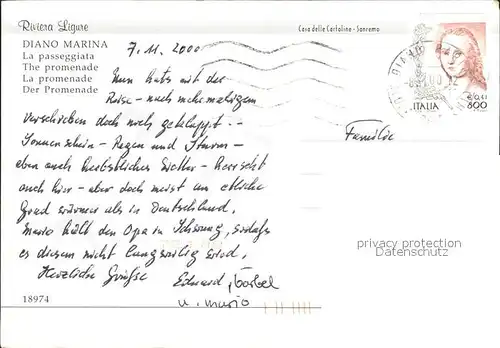 Riviera Ligure
Casa delle Cartoline - Sanremo
DIANO MARINA
La passeggiata
The promenade
La promenade
Der Promenade
7.11.2000
Nun hats mit der
Reise - nach mehrmaligem
Verschieben doch noch geklappt. -
Sonnenschein - Regen und Sturm -
eben auch herbstliches Wetter - herrscht
auch hier - aber doch meist um etliche
Grad wärmer als in Deutschland.
Mario hält den Opa in Schwung, sodaß
es diesem nicht langweilig wird.
Herzliche Grüße Eduard, Bärbel
u. Mario
Familie
DIANO MAR
ITALIA
€0,41
800
privacy protection
Datenschutz
18974